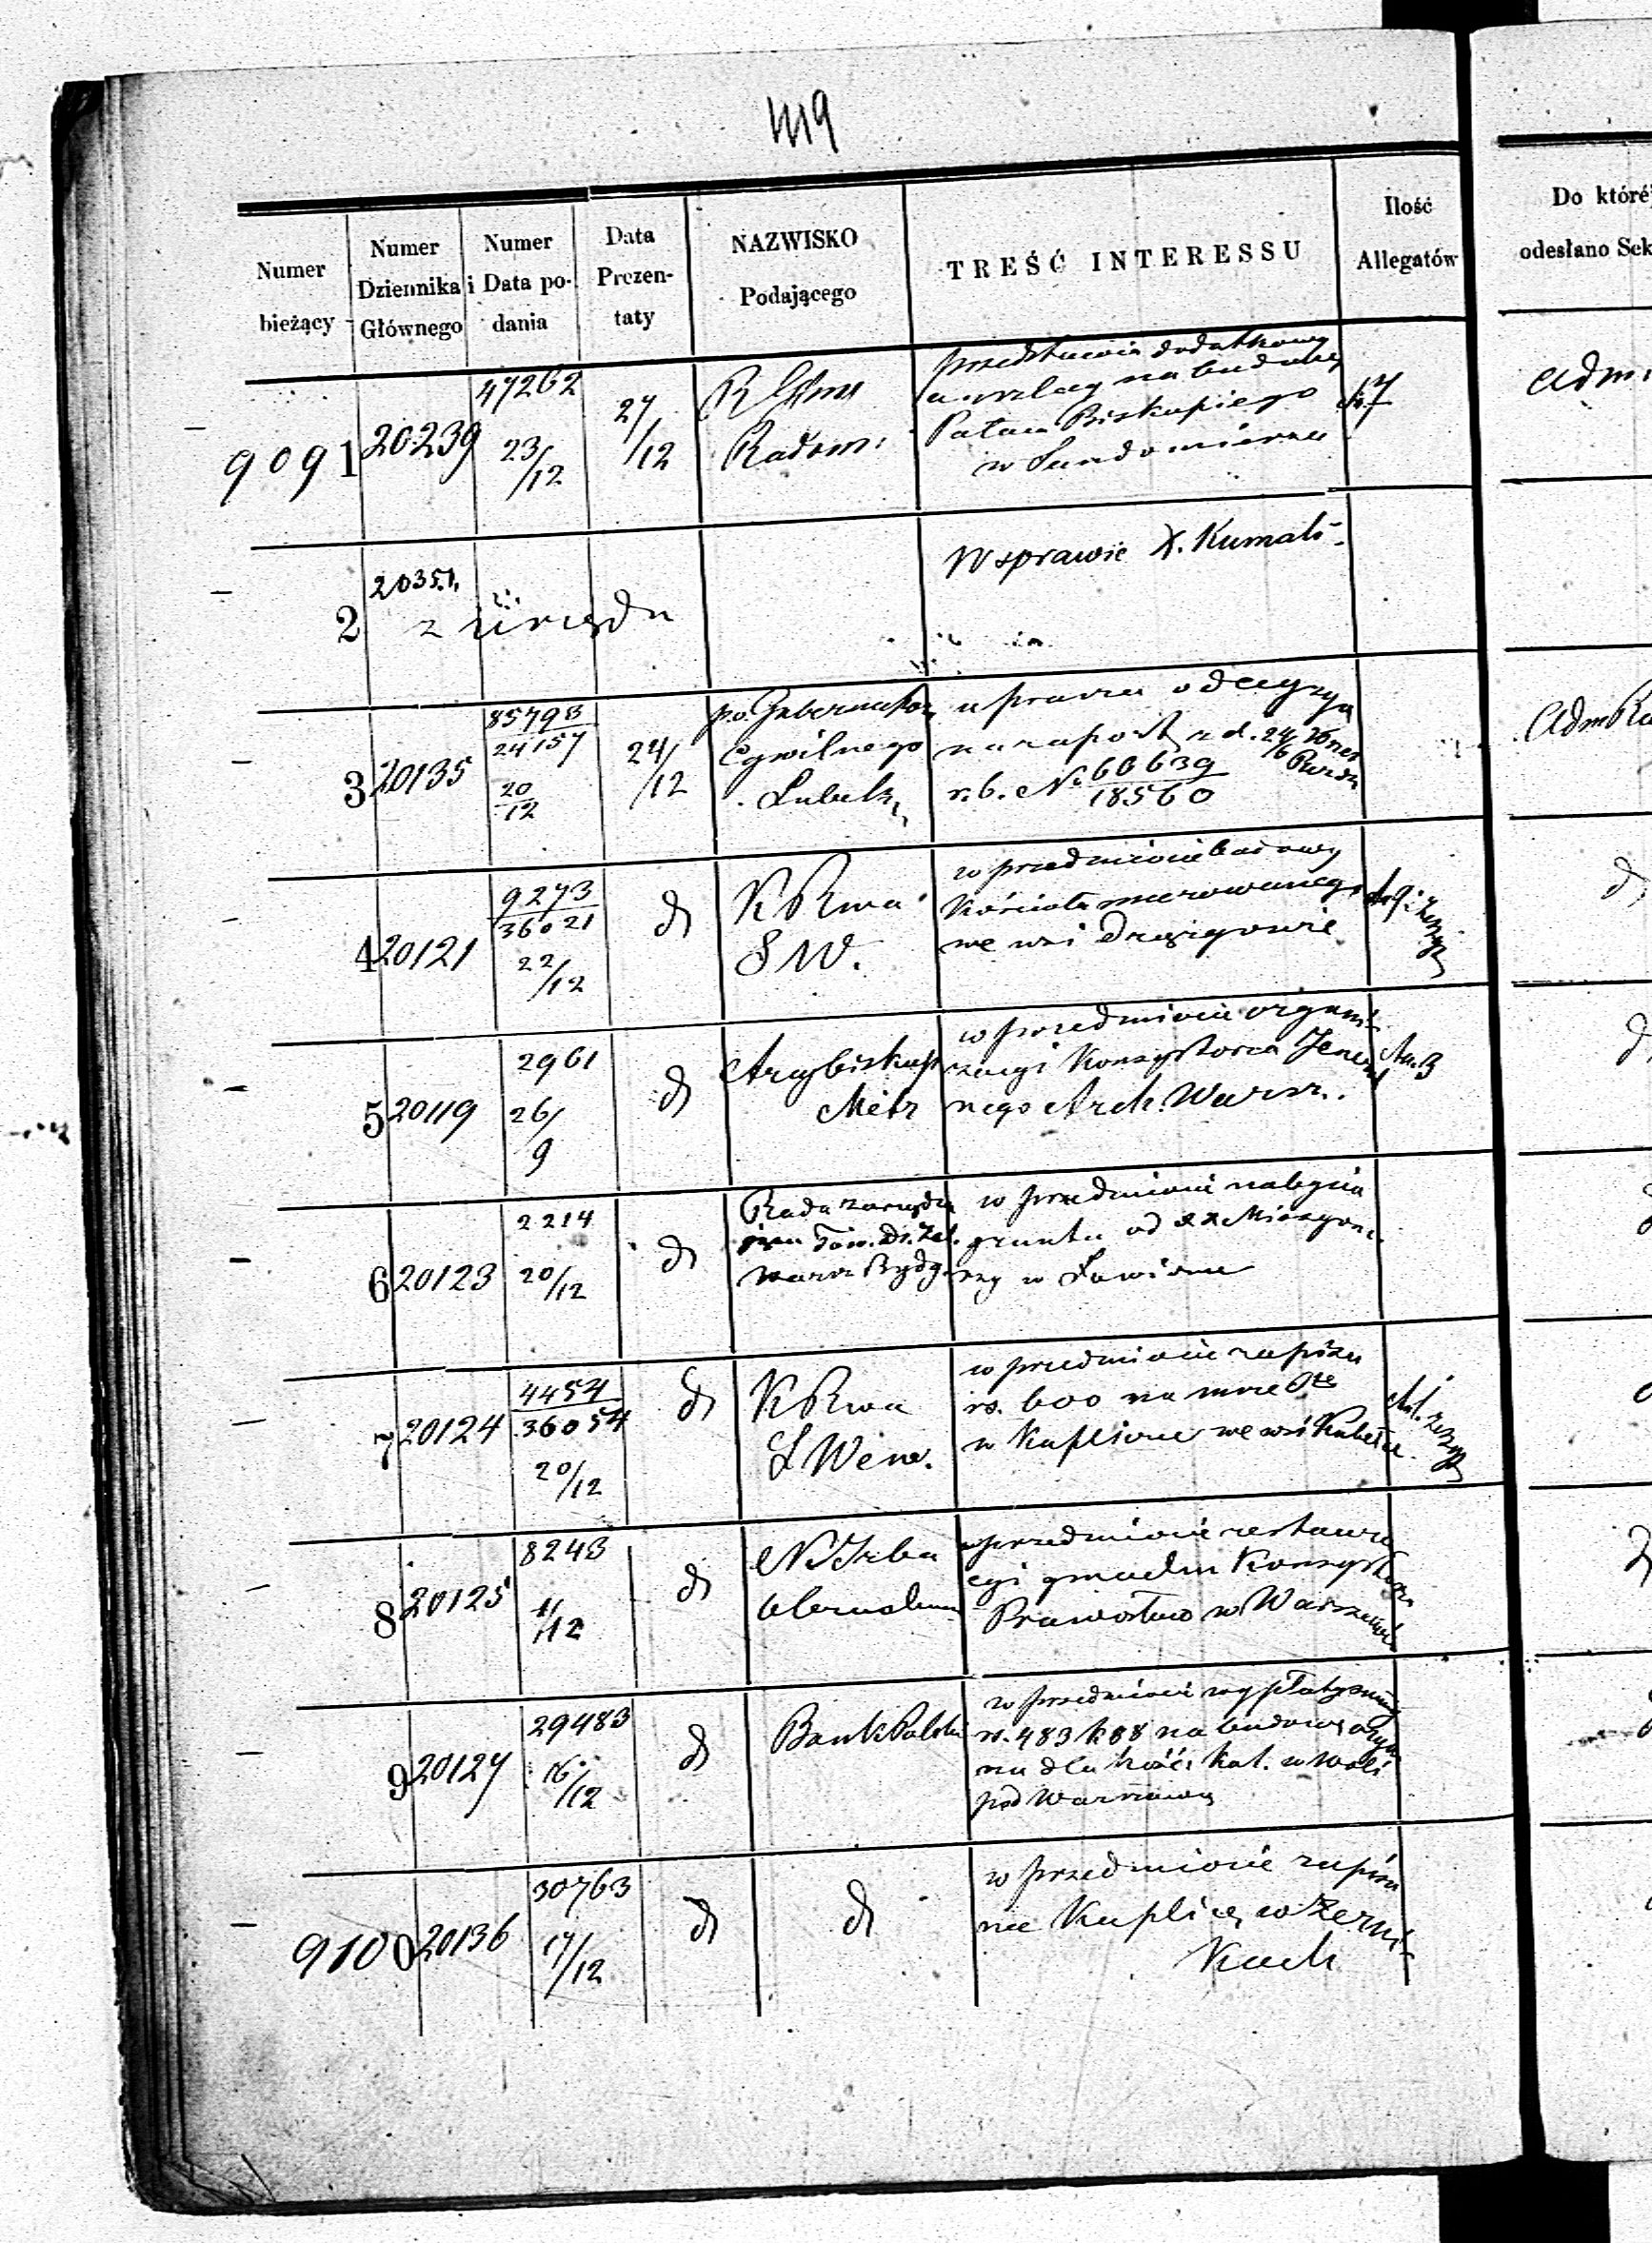 1119
Numer bieżący
Numer Dziennika Głównego
Numer i Data podania
Data Prezentaty
NAZWISKO Podającego
TREŚĆ INTERESSU
Ilość Allegatów
Do któréj
odesłano Sek
9091
20239
47262
23/12
27/12
Radom.
przedstawia dodatkowy
na budowę
Pałacu Biskupiego
w Sandomierzu
Adm
2
20351.
z Urzędu
W sprawie X. Kumals-
3
20135
85793
24157
20
12
24/12
p.o. Gubernatora
Cywilnego
Lubels.
uprasza o decyzyą
na raport z d. 24/6
r. b. No 66639
18560
Adm
4
20121
9273
36021
22/12
d
K R
S W.
w przedmiocie budowy
Kościoła murowanego
we wsi
d
5
20119
2961
26/
9
d
Arcybiskup
Metr
w przedmiocie organi-
zacyi Konsystorza Jeneral
nego Arch. Warsz.
d
6
20123
2214
20/12
d
Rada zarządza
jąca Tow. Dr. Żel.
Warsz Bydg.
w przedmiocie nabycia
gruntu od XX Misyona-
rzy w Łowiczu
7
20124
4454
36054
20/12
d
K R
S Wew.
w przedmiocie zapisu
rs. 600 na msze Ste
w Kaplicy we wsi
8
20125
8243
1/12
d
N. Izba
Obrachun
w przedmiocie restaura
cyi gmachu Konsystorza
Prawosław w Warszawie
9
20127
29483
16/12
d
Bank Polski
w przedmiocie wypłaty sumy
rs. 483 k 88 na budowę
na dla kość. kat. w Woli
pod Warszawą
9100
20136
30763
17/12
d
d
w przedmiocie zapisu
na Kaplicę w Żerni-
kach